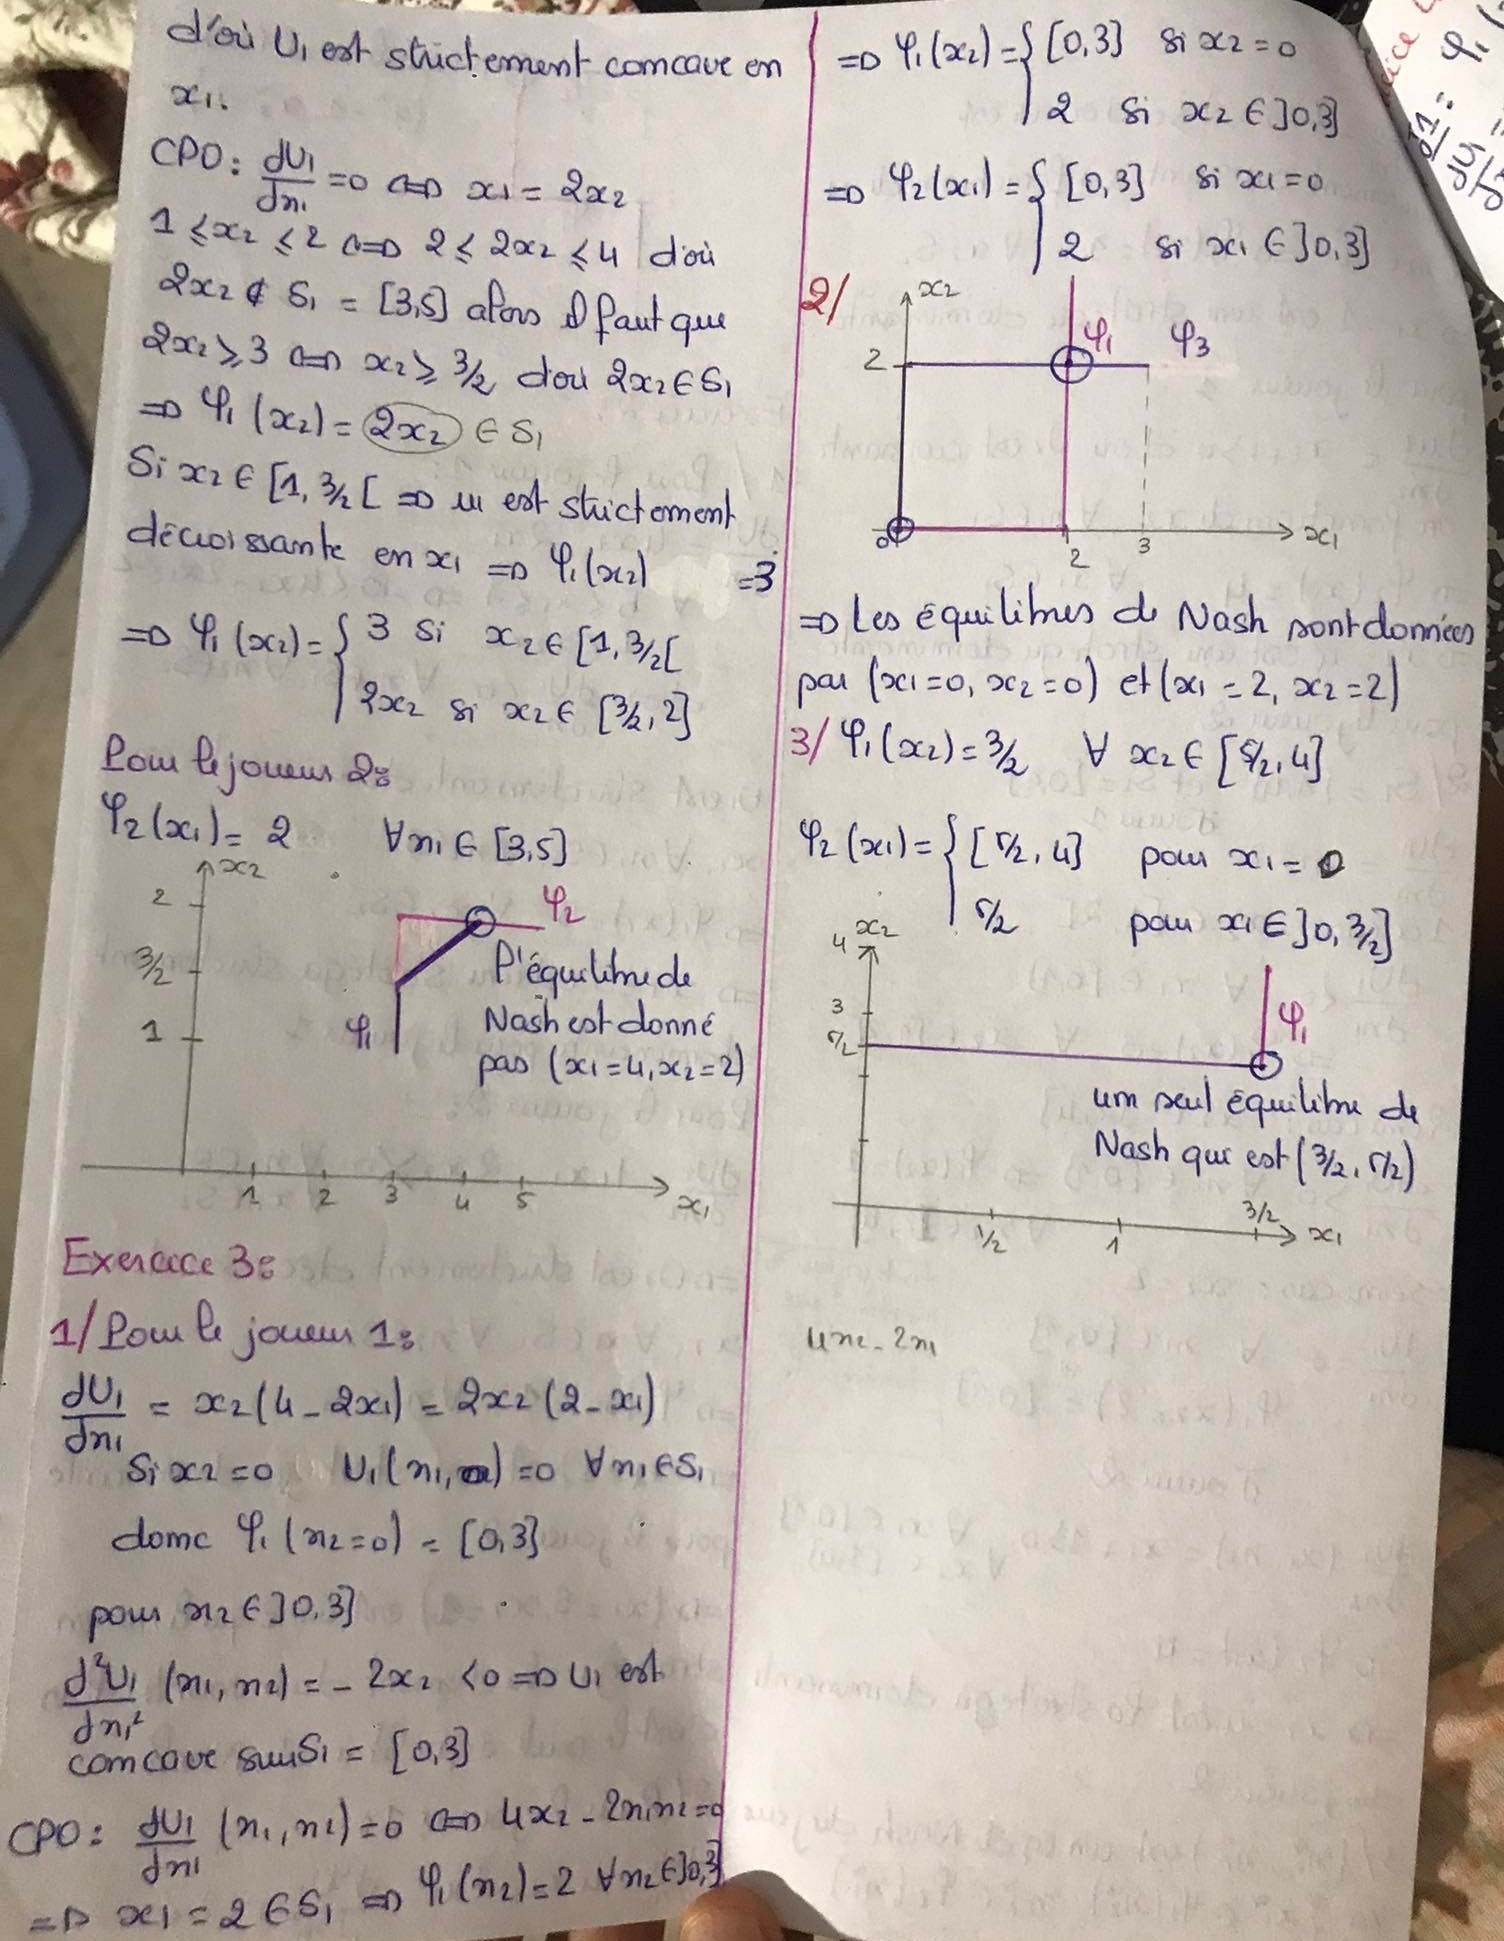 d'où U₁ est strictement concave en
x₁.
CPO : dU₁/dx₁ = 0 <=> x₁ = 2x₂
1 ≤ x₂ ≤ 2 <=> 2 ≤ 2x₂ ≤ 4 d'où
2x₂ ∉ S₁ = [3,5] alors il faut que
2x₂ ≥ 3 <=> x₂ ≥ 3/2 d'où 2x₂ ∈ S₁
=> φ₁(x₂) = 2x₂ ∈ S₁
Si x₂ ∈ [1, 3/2[ => u₁ est strictement
décroissante en x₁ => φ₁(x₂) = 3
=> φ₁(x₂) = { 3 si x₂ ∈ [1, 3/2[
2x₂ si x₂ ∈ [3/2, 2]
Pour le joueur 2 :
φ₂(x₁) = 2 ∀x₁ ∈ [3,5]
x₂
2
3/2
1
φ₂
φ₁
l'équilibre de
Nash est donné
pas (x₁=4, x₂=2)
1 2 3 4 5 x₁
Exercice 3 :
1/ Pour le joueur 1 :
dU₁/dx₁ = x₂(4 - 2x₁) = 2x₂(2 - x₁)
Si x₂ = 0 U₁(x₁, 0) = 0 ∀x₁ ∈ S₁
donc φ₁(x₂=0) = [0,3]
pour x₂ ∈ ]0,3]
d²U₁/dx₁² (x₁, x₂) = - 2x₂ < 0 => U₁ est
concave sur S₁ = [0,3]
CPO : dU₁/dx₁ (x₁, x₂) = 0 <=> 4x₂ - 2x₁x₂ = 0
=> x₁ = 2 ∈ S₁ => φ₁(x₂) = 2 ∀x₂ ∈ ]0,3]
=> φ₁(x₂) = { [0,3] si x₂ = 0
2 si x₂ ∈ ]0,3]
=> φ₂(x₁) = { [0,3] si x₁ = 0
2 si x₁ ∈ ]0,3]
2/
x₂
φ₁ φ₃
2
0 2 3 x₁
=> Les équilibres de Nash sont données
par (x₁=0, x₂=0) et (x₁=2, x₂=2)
3/ φ₁(x₂) = 3/2 ∀ x₂ ∈ [5/2, 4]
φ₂(x₁) = { [5/2, 4] pour x₁ = 0
5/2 pour x₁ ∈ ]0, 3/2]
x₂
4
3
5/2
φ₁
un seul équilibre de
Nash qui est (3/2, 5/2)
1/2 1 3/2 x₁
4x₂ - 2x₁